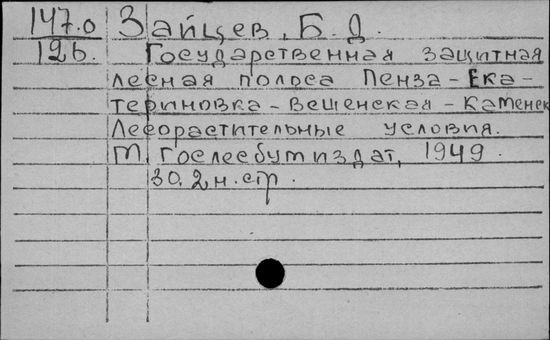 147.0 Зайцев, Б. Д.
126. Государственная защитная
лесная полоса Пенза - Ека-
териновка - Вешенская - Каменск
Лесорастительные условия.
М Гослесбумиздат, 1949.
30.2 н. стр.